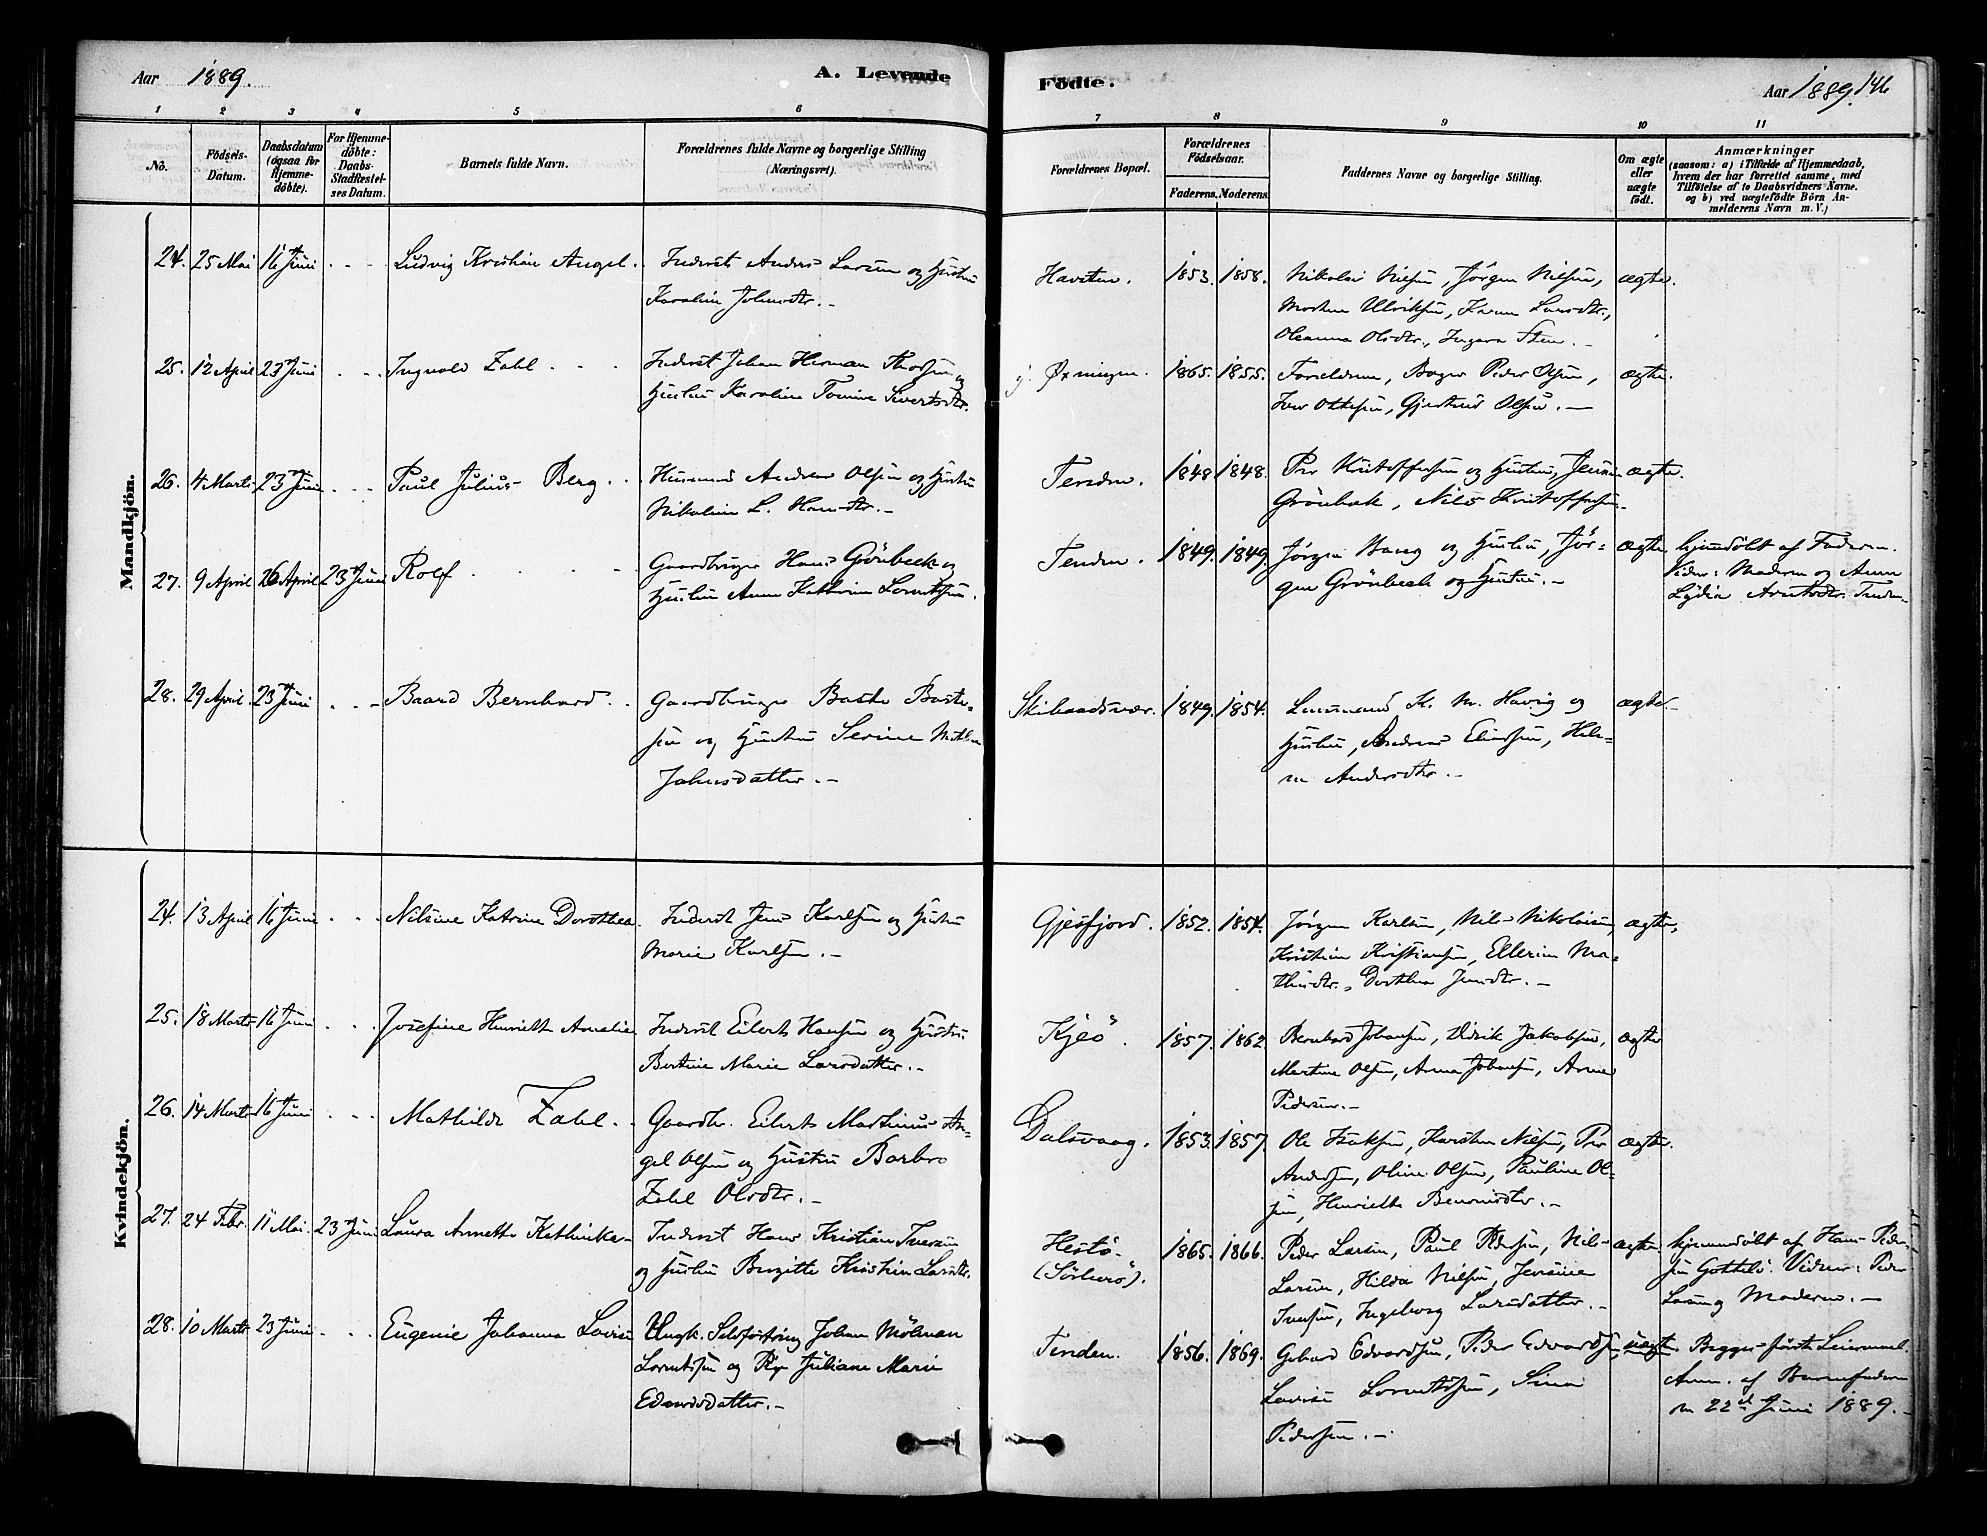 Aar 1889.
A. Levende
1 2 3 4 5 6
No.
Födsels-Datum.
Daabsdatum (ogsaa for Hjemmedöbte).
For Hjemmedöbte: Daabs-Stadfæstelses Datum.
Barnets fulde Navn.
Forældrenes fulde Navne og borgerlige Stilling (Næringsvei).
Mandkjön.
24. 25 Mai 16 Juni Ludvig Kristian Angel. Inderst Anders Larsen og Hustru
Karoline Johnsdtr.
25. 12 April 23 Juni Ingvald Zahl. Inderst Johan Herman Thorsen og
Hustru Karoline Tomine Sivertsdtr.
26. 4 Marts 23 Juni Paul Julius Berg. Husmand Andreas Olsen og Hustru
Nikoline L. Hansdtr.
27. 9 April 26 April 23 Juni Rolf Gaardbruger Hans Grönbeck og
Hustru Anna Kathrine Lorentsen.
28. 29 April 23 Juni Baard Bernhard. Gaardbruger Baste Baste-
sen og Hustru Serine
Johnsdatter.
Kvindekjön.
24. 13 April 16 Juni Nilsine Katrine Dorothea Inderst Jens Karlsen og Hustru
Marie Karlsen.
25. 18 Marts 16 Juni Josefine Henriette Amalie Inderst Eilert Hansen og Hustru
Bertine Marie Larsdatter.
26. 14 Marts 16 Juni Mathilde Zahl. Gaardbr. Eilert Martinus An-
gel Olsen og Hustru Barbro
Zahl Olsdtr.
27. 24 Febr. 11 Mai 23 Juni Laura Annette Kathinka Inderst Hans Kristian Iversen
og Hustru Birgitte Kristine Larsdtr.
28. 10 Marts 23 Juni Eugenie Johanna Lovise Ungk. Johan Mölman
Lorentsen og Pige Juliane Marie
Edvardsdatter.
Födte.
Aar 1889. 146
7 8 9 10 11
Forældrenes Bopæl.
Forældrenes Födselsaar.
Faderens. Moderens.
Faddernes Navne og borgerlige Stilling.
Om ægte eller uægte födt.
Anmærkninger
(saasom: a) i Tilfælde af Hjemmedaab, hvem der har forrettet samme, med Tilföielse af to Daabsvidners Navne. og b) ved uægtefödte Börn Anmelderens Navn m. V.)
Havsten. 1853. 1858. Nikolai Nilsen, Jörgen Nilsen, ægte.
Morten Ulriksen, Karen Larsdtr.,
Oleanna Olsdtr., Ingara Sten.
Øxningen. 1865. 1855. Forældrene, Peder Olsen, ægte.
Iver Ottesen, Gjertrud Olsen.
1848 1848. Per Kristoffersen og Hustru, Jensine ægte.
Grönbek, Nils Kristoffersen.
1849. 1849. Jörgen og Hustru, Jör- ægte hjemdöbt af Faderen.
gen Grönbeck og Hustru. Vidner: Moderen og Anna
Lydia
Skibaadsvær. 1849. 1854. Lensmand K. M. Havig og ægte.
Hustru, Andreas Eliassen, Hele-
ne Andersdtr.
Gjesfjord. 1852. 1854. Jörgen Karlsen, Nils Nikolaisen, ægte,
Kristian Kristiansen, Ma-
Dorthea Jensdtr.
Kjeö. 1857. 1862. Bernhard Johansen, Didrik Jakobsen, ægte
Martine Olsen, Anna Johansen, Anne
Pedersen.
Dalsvaag. 1853. 1857. Ole Isaksen, Karsten Nilsen, Per ægte.
Andersen, Oline Olsen, Pauline Ol-
sen, Henriette
Hestö. 1865. 1866. Peder Larsen, Paul Pedersen, Nils ægte. hjemmedöbt af Hans Peder-
(Sörherö). Larsen, Hilda Nilsen, Jensine sen Vidner: Peder
Iversen, Ingeborg Larsdatter. Larsen og Moderen.
Tenden. 1856. 1869. Gerhard Edvardsen, Peder Edvardsen, uægte. Begges förste Leiermaal.
Lovise Lorentsen, Sina Anm. af Barnefaderen
Pedersen. 22d Juni 1889.